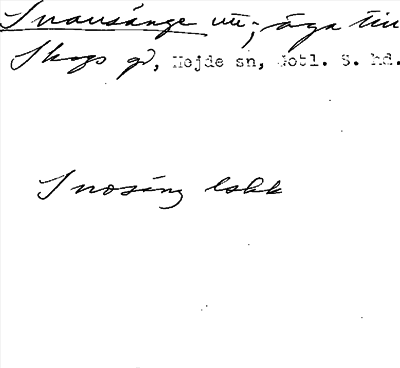 Snausänge utr; äga till
Skogs gd, Hejde sn, Gotl. S. hd.
Snosäng lokk